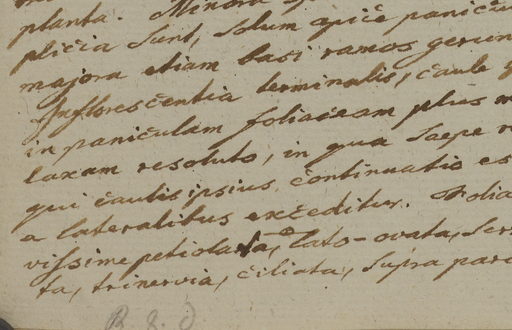 planta. Minora
plicia sunt, solum apice panicu
majora etiam basi ramos gerun
Inflorescentia terminalis, caule
in paniculam foliaceam plus
laxam resoluto, in qua saepe
qui caulis ipsius continuatio es
a lateralibus exceditur. Folia
vissime petiolata, lato-ovata, ser
ta, trinervia, ciliata, supra par